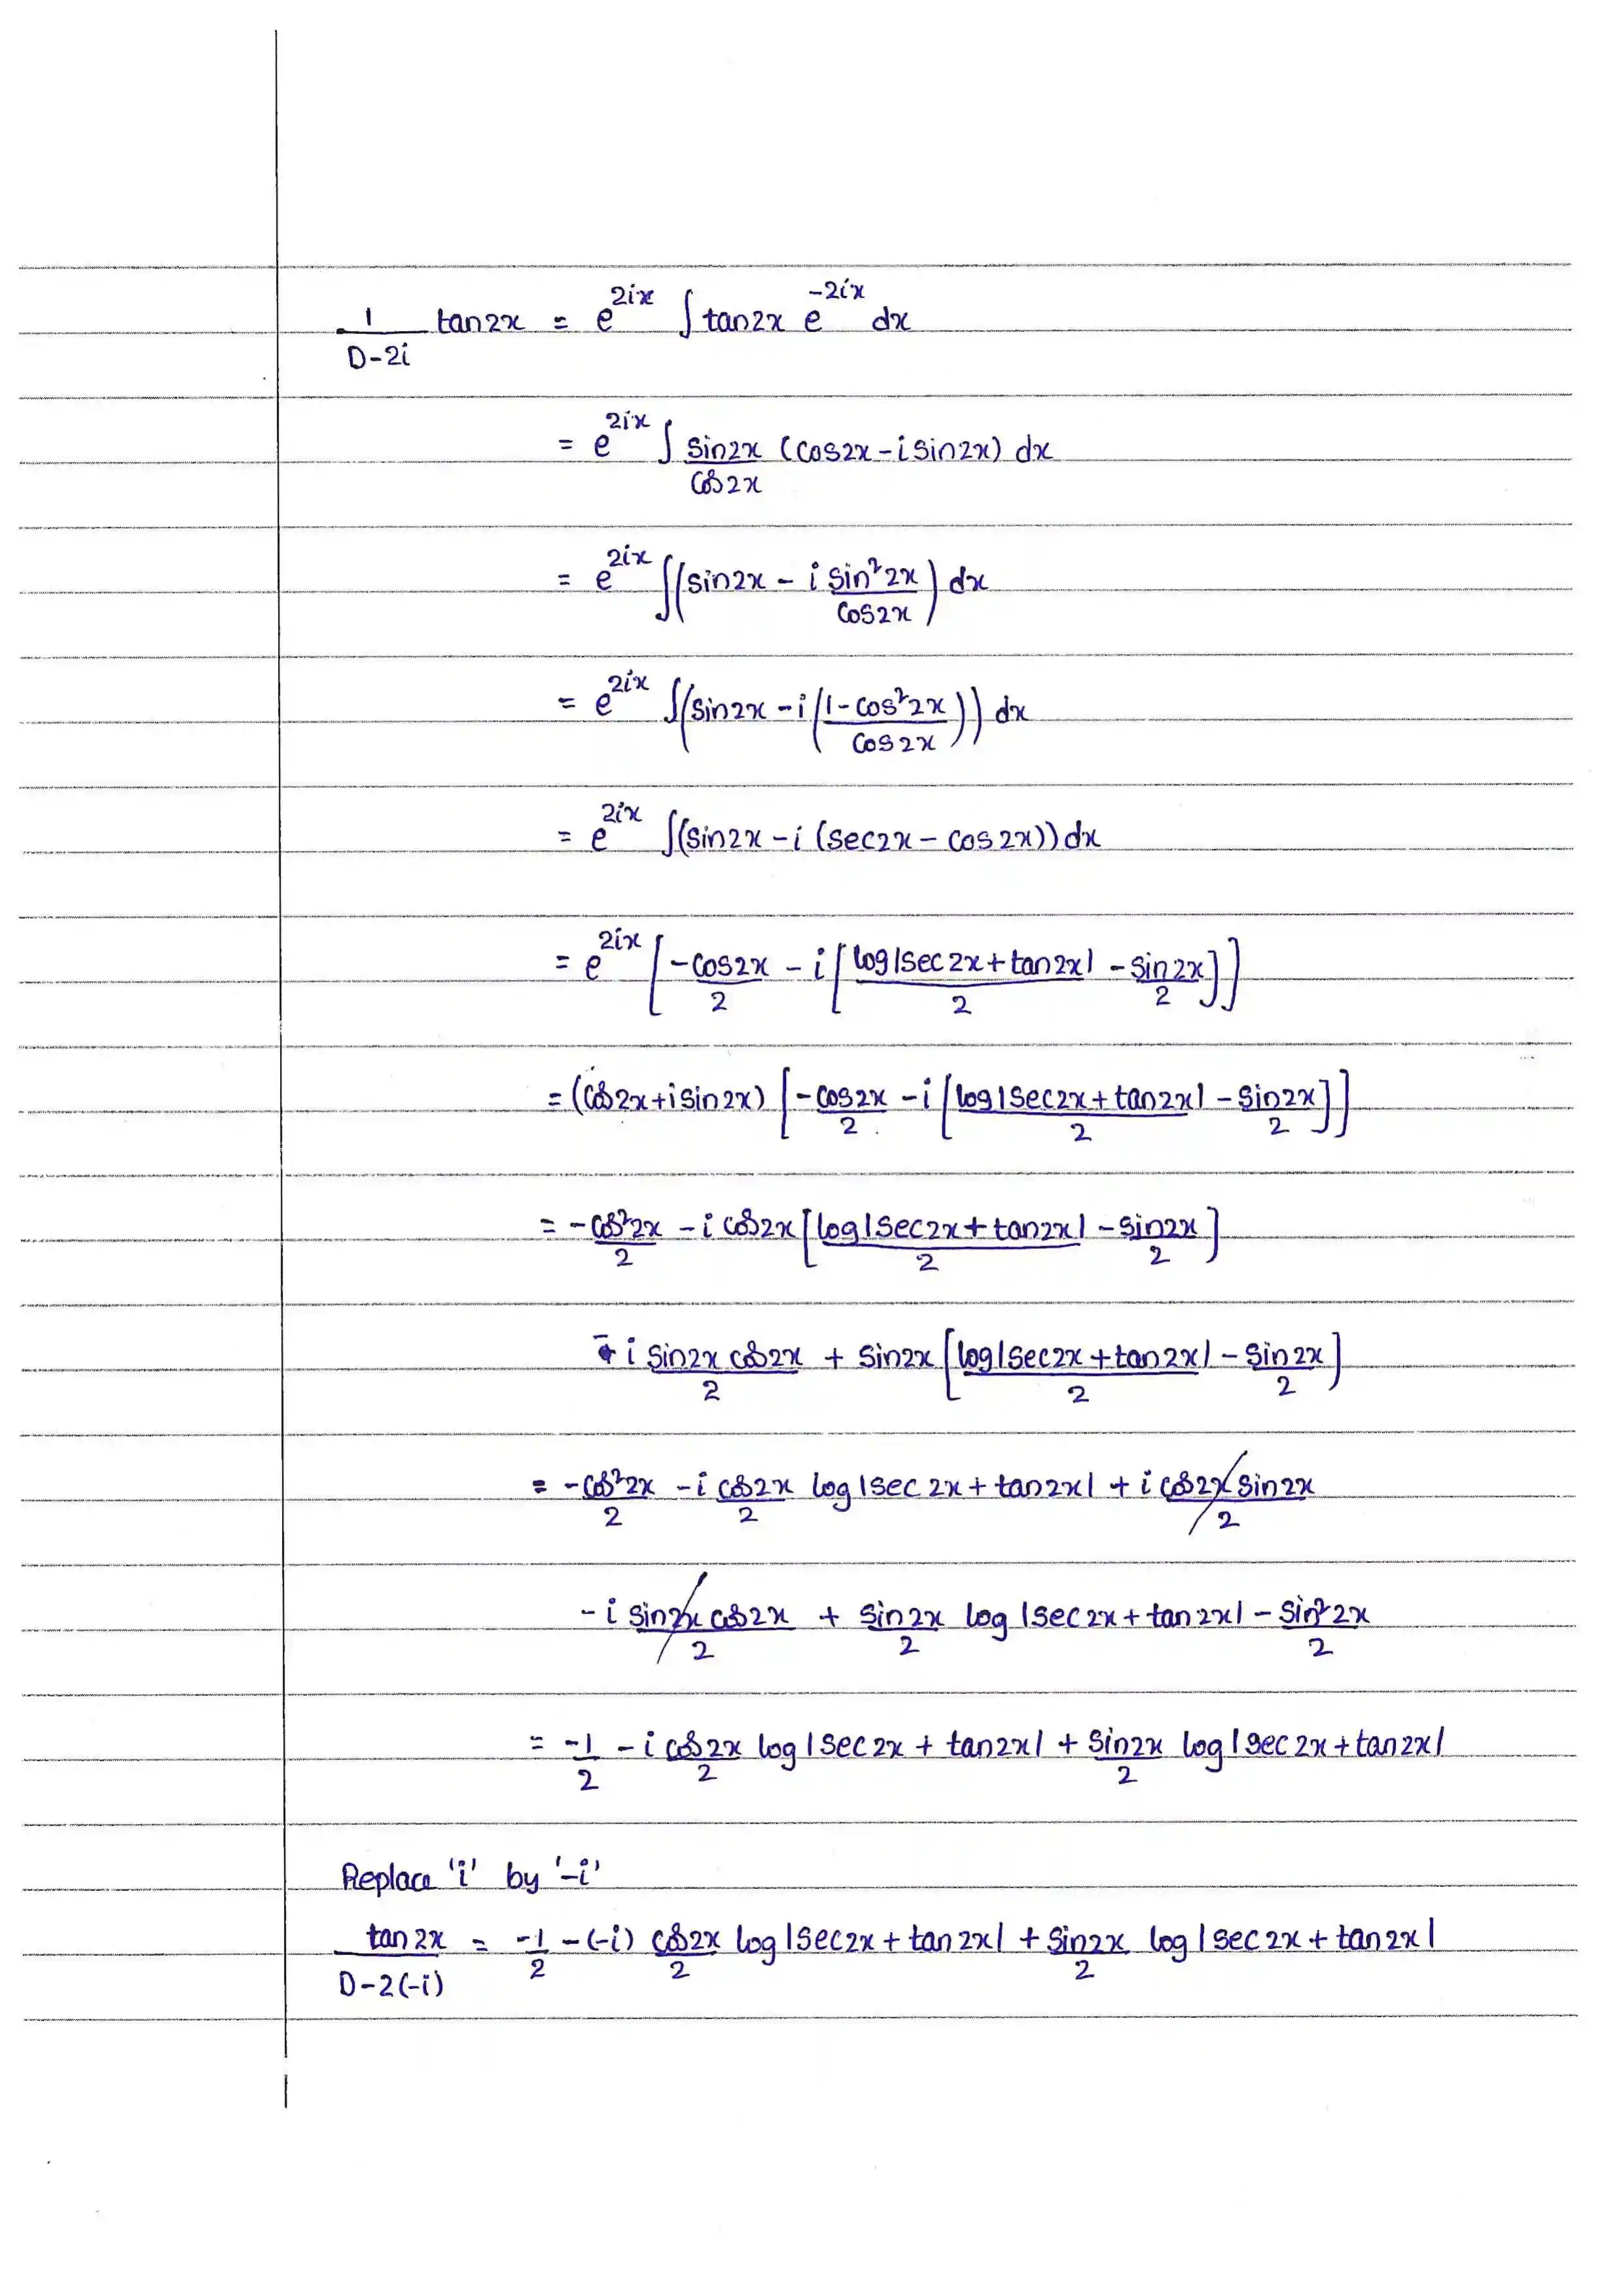 1/(D-2i) tan2x = e^{2ix} ∫ tan2x e^{-2ix} dx
= e^{2ix} ∫ sin2x/cos2x (cos2x - i sin2x) dx
= e^{2ix} ∫(sin2x - i sin²2x/cos2x) dx
= e^{2ix} ∫(sin2x - i((1 - cos²2x)/cos2x)) dx
= e^{2ix} ∫(sin2x - i (sec2x - cos2x)) dx
= e^{2ix} [-cos2x/2 - i [log|sec2x + tan2x|/2 - sin2x/2]]
= (cos2x + i sin2x) [-cos2x/2 - i [log|sec2x + tan2x|/2 - sin2x/2]]
= -cos²2x/2 - i cos2x [log|sec2x + tan2x|/2 - sin2x/2]
- i sin2x cos2x/2 + sin2x [log|sec2x + tan2x|/2 - sin2x/2]
= -cos²2x/2 - i cos2x/2 log|sec2x + tan2x| + i cos2x sin2x/2
- i sin2x cos2x/2 + sin2x/2 log|sec2x + tan2x| - sin²2x/2
= -1/2 - i cos2x/2 log|sec2x + tan2x| + sin2x/2 log|sec2x + tan2x|
Replace 'i' by '-i'
tan2x/(D-2(-i)) = -1/2 - (-i) cos2x/2 log|sec2x + tan2x| + sin2x/2 log|sec2x + tan2x|